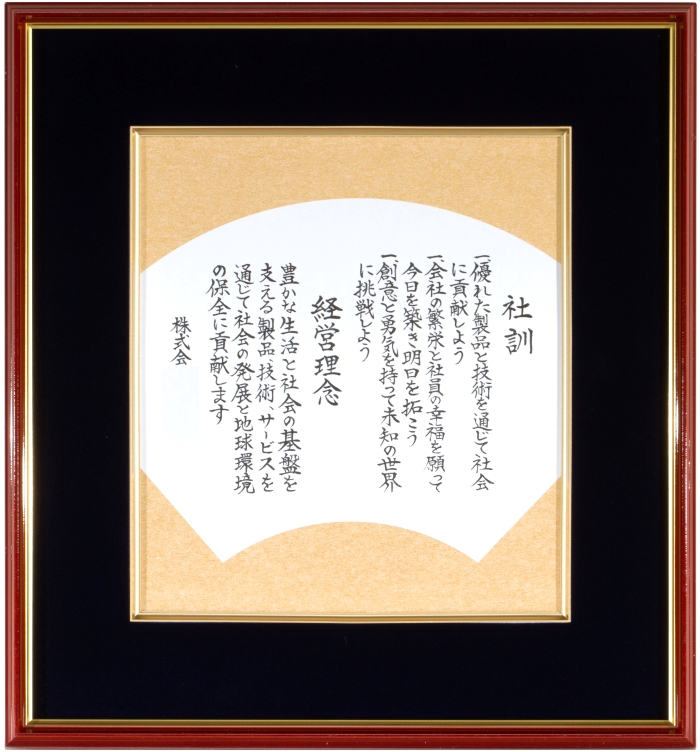 社訓
一、優れた製品と技術を通じて社会
に貢献しよう
一、会社の繁栄と社員の幸福を願って
今日を築き明日を拓こう
一、創意と勇気を持って未知の世界
に挑戦しよう
経営理念
豊かな生活と社会の基盤を
支える製品、技術、サービスを
通じて社会の発展と地球環境
の保全に貢献します
株式会